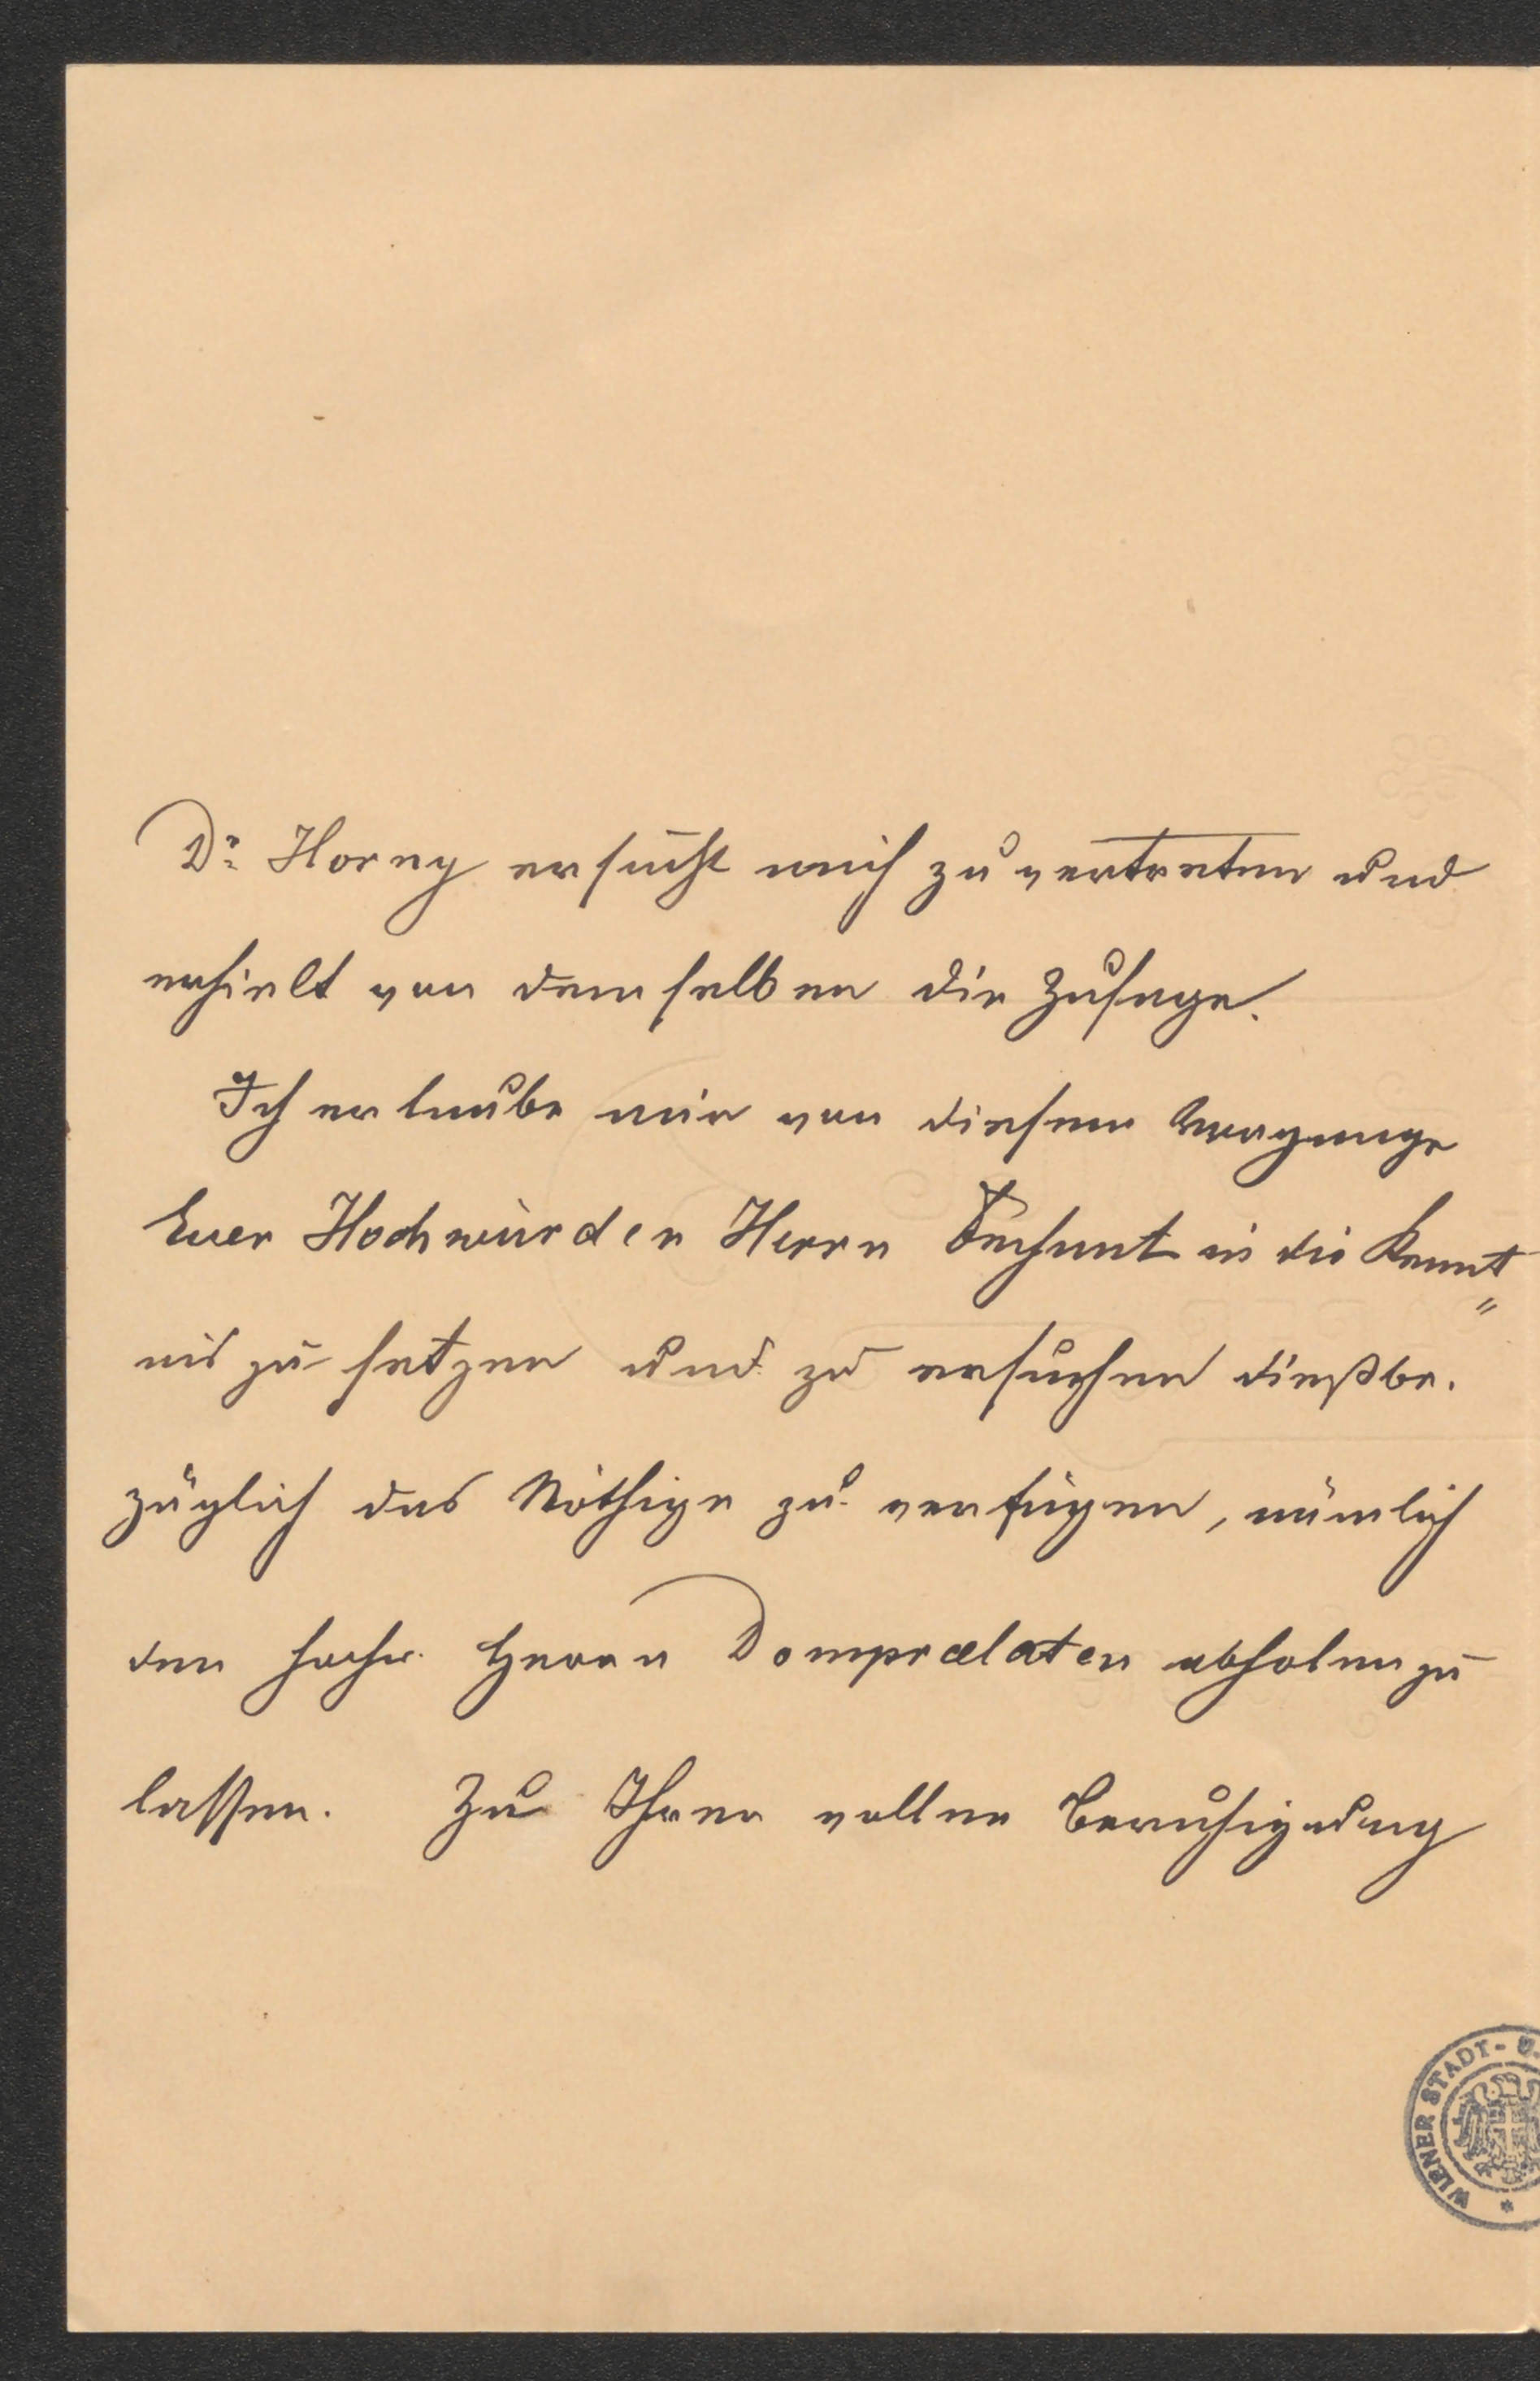 Dr. Horny ersucht mich zu vertreten und
erhielt von demselben die Zusage.
Ich erlaube mir von diesem Vorgange
Euer Hochwürden Herrn Dechant in die Kennt⸗
nis zu setzen und zu ersuchen dießbe.
züglich das Nöthige zu verfügen, nämlich
den hochw. Herrn Dompraelaten abholen zu
lassen. Zu Ihrer vollen Beruhigung
WIENER STADT- U.